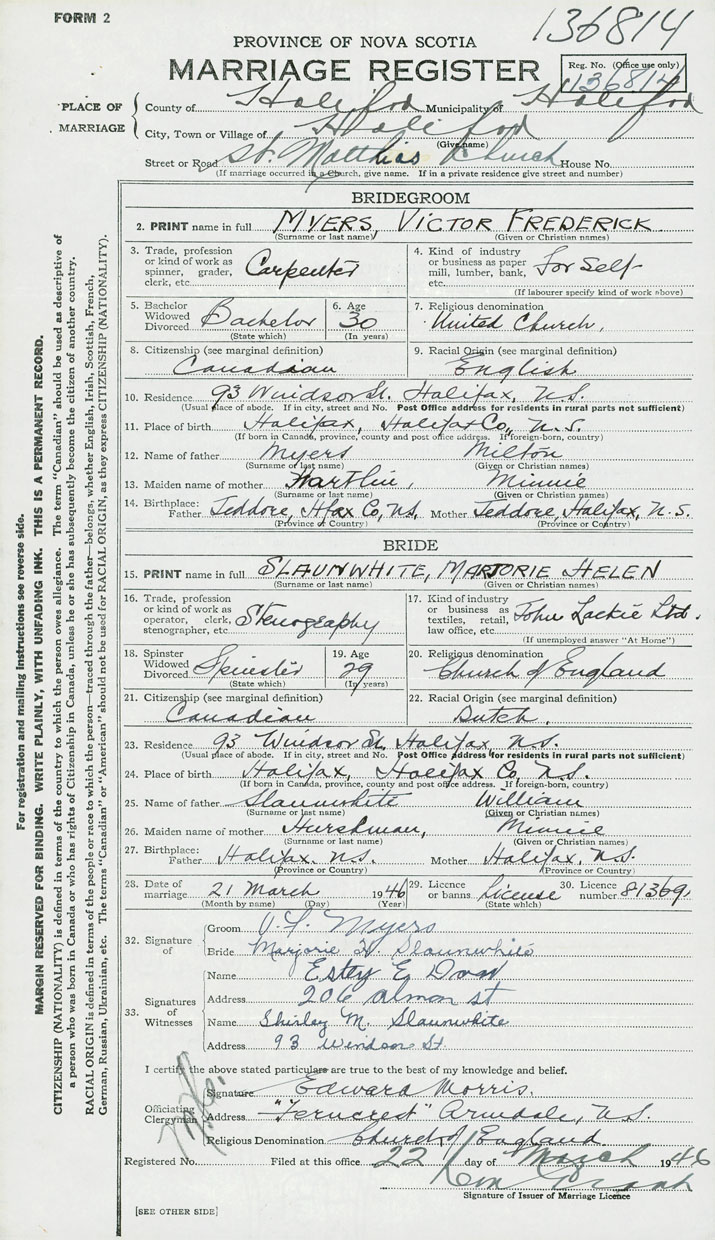 FORM 2
136814
PROVINCE OF NOVA SCOTIA
MARRIAGE REGISTER
Reg. No. (Office use only)
136814
PLACE OF MARRIAGE
County of Halifax Municipality of Halifax
City, Town or Village of Halifax
(Give name)
Street or Road St. Matthias Church House No.
(If marriage occurred in a Church, give name. If in a private residence give street and number)
BRIDEGROOM
2. PRINT name in full MYERS, VICTOR FREDERICK
(Surname or last name) (Given or Christian names)
3. Trade, profession or kind of work as spinner, grader, clerk, etc. Carpenter
4. Kind of industry or business as paper mill, lumber, bank, etc. For Self
(If labourer specify kind of work above)
5. Bachelor Widowed Divorced Bachelor
(State which)
6. Age 30
(In years)
7. Religious denomination
United Church,
8. Citizenship (see marginal definition)
Canadian
9. Racial Origin (see marginal definition)
English
10. Residence 93 Windsor St. Halifax, N.S.
(Usual place of abode. If in city, street and No. Post Office address for residents in rural parts not sufficient)
11. Place of birth Halifax, Halifax Co., N.S.
(If born in Canada, province, county and post office address. If foreign-born, country)
12. Name of father Myers Milton
(Surname or last name) (Given or Christian names)
13. Maiden name of mother Hartlin, Minnie
(Surname or last name) (Given or Christian names)
14. Birthplace: Father Jeddore, Hfax Co, N.S. Mother Jeddore, Halifax, N.S.
(Province or Country) (Province or Country)
BRIDE
15. PRINT name in full SLAUNWHITE, MARJORIE HELEN
(Surname or last name) (Given or Christian names)
16. Trade, profession or kind of work as operator, clerk, stenographer, etc. Stenography
17. Kind of industry or business as textiles, retail, law office, etc. John Leckie Ltd.
(If unemployed answer "At Home")
18. Spinster Widowed Divorced Spinster
(State which)
19. Age 29
(In years)
20. Religious denomination
Church of England
21. Citizenship (see marginal definition)
Canadian
22. Racial Origin (see marginal definition)
Dutch.
23. Residence 93 Windsor St. Halifax N.S.
(Usual place of abode. If in city, street and No. Post Office address for residents in rural parts not sufficient)
24. Place of birth Halifax, Halifax Co, N.S.
(If born in Canada, province, county and post office address. If foreign-born, country)
25. Name of father Slaunwhite William
(Surname or last name) (Given or Christian names)
26. Maiden name of mother Hurshman, Minnie
(Surname or last name) (Given or Christian names)
27. Birthplace: Father Halifax. N.S. Mother Halifax, N.S.
(Province or Country) (Province or Country)
28. Date of marriage 21 March 1946
(Month by name) (Day) (Year)
29. Licence or banns License
(State which)
30. Licence number 81369
32. Signature of
Groom V. F. Myers
Bride Marjorie H. Slaunwhite
33. Signatures of Witnesses
Name Estey E
Address 206 Almon st
Name Shirley M. Slaunwhite
Address 93 Windsor St.
I certify the above stated particulars are true to the best of my knowledge and belief.
Officiating Clergyman
Signature Edward Morris.
Address "Ferncrest" Armdale, N.S.
Religious Denomination Church of England.
Registered No. Filed at this office 22 day of March 1946
Signature of Issuer of Marriage Licence
[SEE OTHER SIDE]
For registration and mailing instructions see reverse side.
MARGIN RESERVED FOR BINDING. WRITE PLAINLY, WITH UNFADING INK. THIS IS A PERMANENT RECORD.
CITIZENSHIP (NATIONALITY) is defined in terms of the country to which the person owes allegiance. The term "Canadian" should be used as descriptive of
a person who was born in Canada or who has rights of Citizenship in Canada, unless he or she has subsequently become the citizen of another country.
RACIAL ORIGIN is defined in terms of the people or race to which the person—traced through the father—belongs, whether English, Irish, Scottish, French,
German, Russian, Ukrainian, etc. The terms "Canadian" or "American" should not be used for RACIAL ORIGIN, as they express CITIZENSHIP (NATIONALITY).